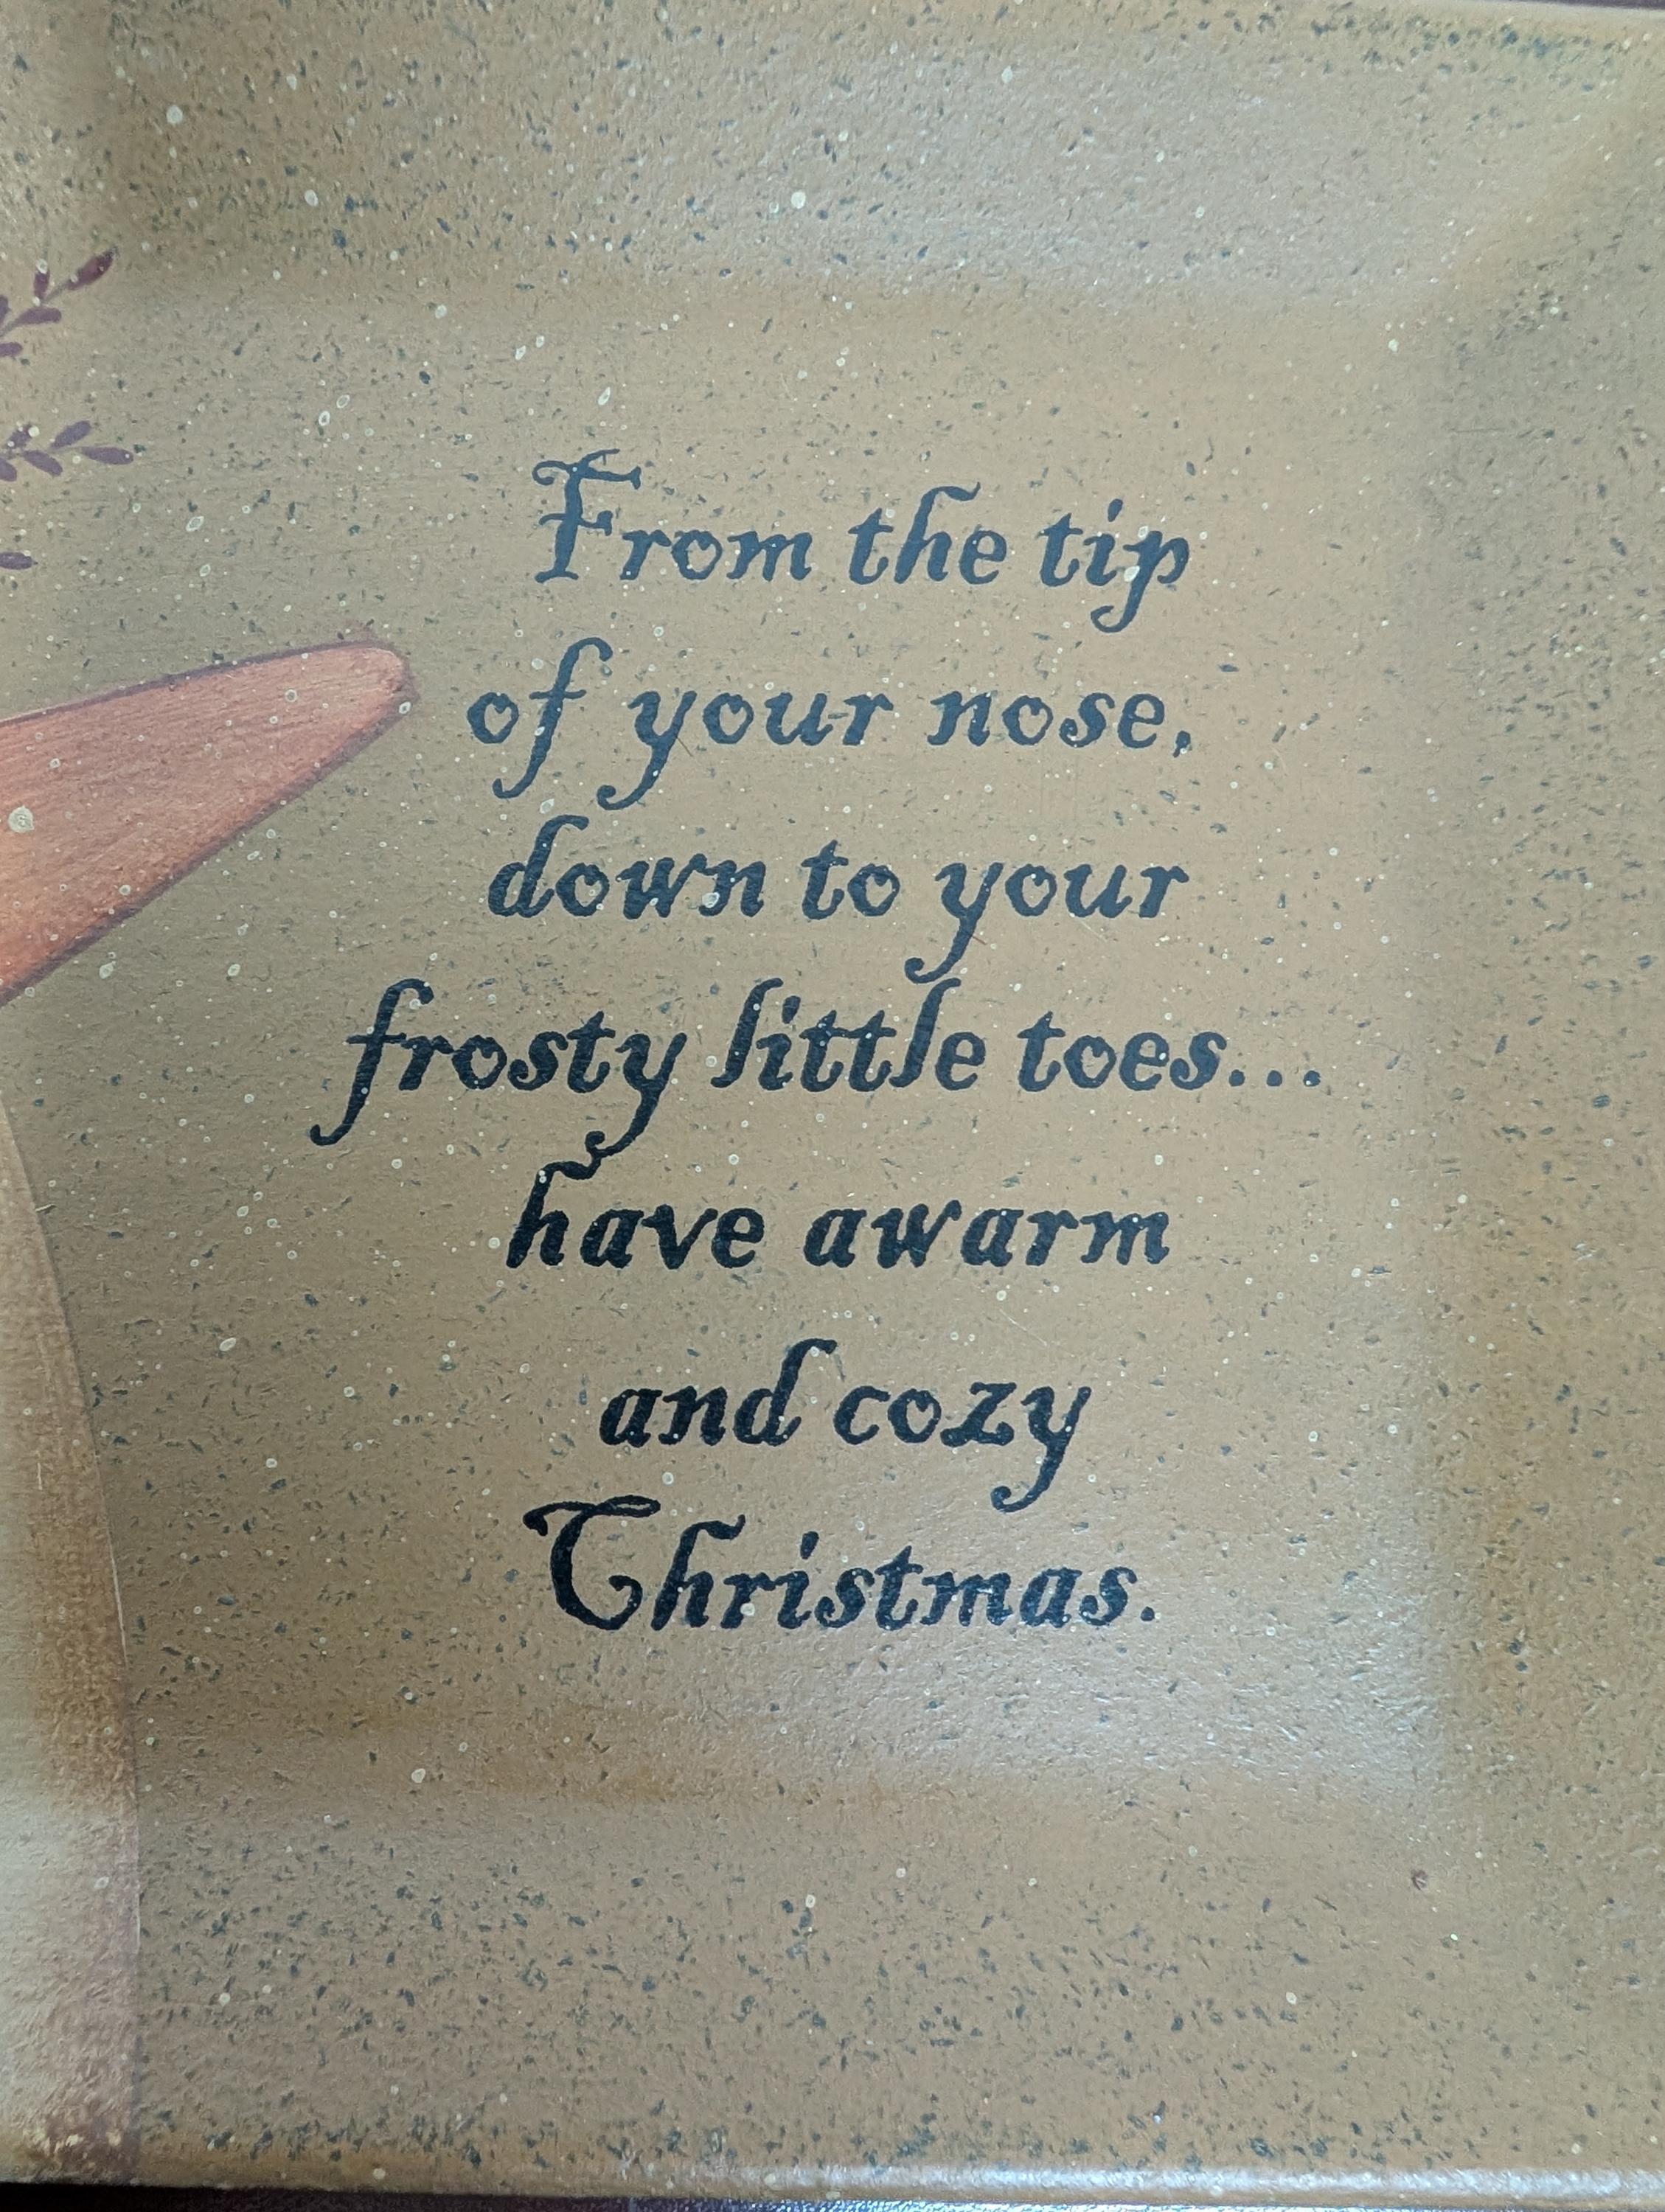 From the tip
of your nose,
down to your
frosty little toes...
have awarm
and cozy
Christmas.